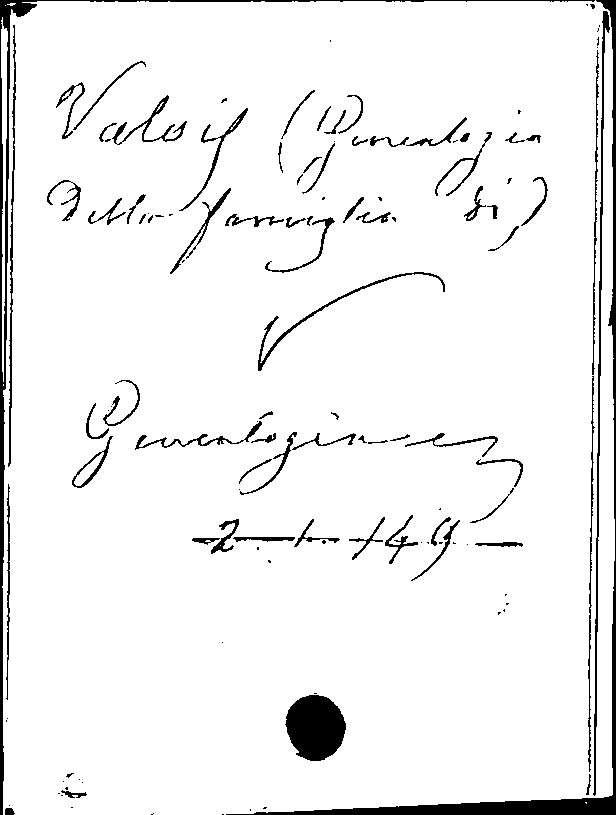 Valois (Genealogia
della famiglia di)
Genealogia
2. 1. 149